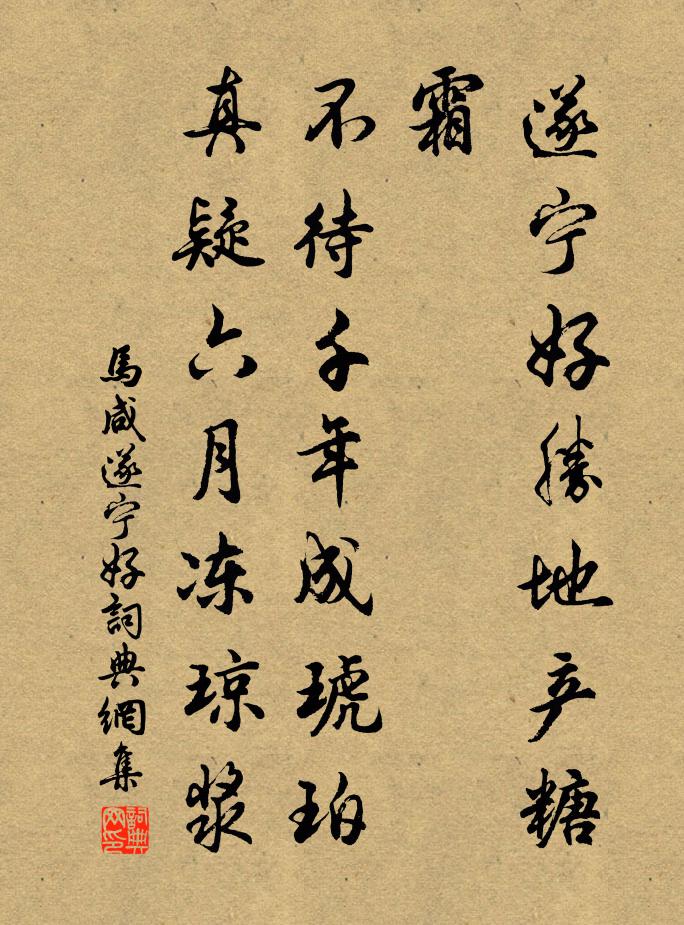 遂宁好勝地产糖
霜
不待千年成琥珀
真疑六月冻琼浆
馬咸遂宁好詞典網集
詞典
网印